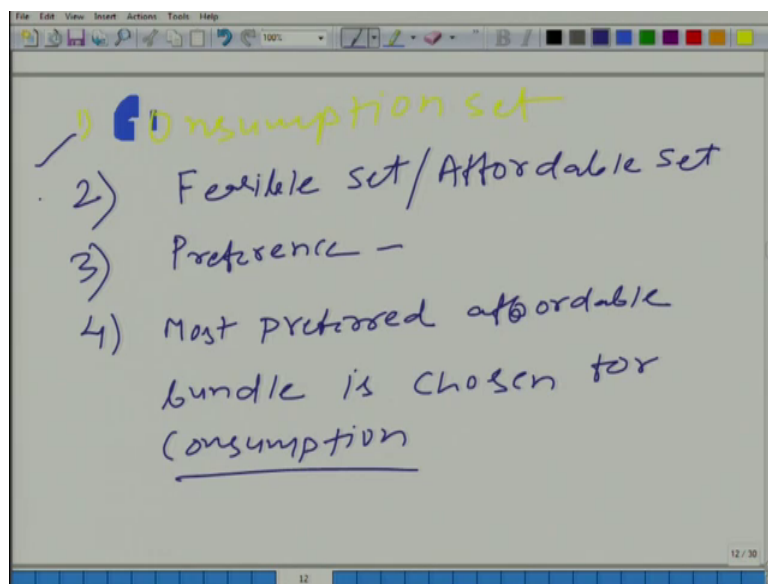 File Edit View Insert Actions Tools Help
100%
B I
1) Consumption set
2) Feasible set/Affordable set
3) Preference -
4) Most preferred affordable
bundle is chosen for
Consumption
12 / 30
12